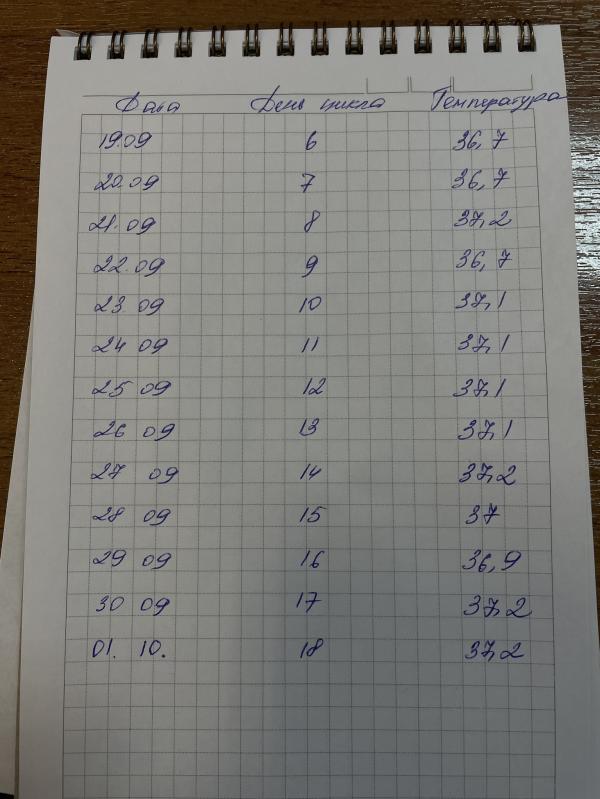 Дата День цикла Температура
19.09 6 36,7
20.09 7 36,7
21.09 8 37,2
22.09 9 36,7
23 09 10 37,1
24 09 11 37,1
25 09 12 37,1
26 09 13 37,1
27 09 14 37,2
28 09 15 37
29 09 16 36,9
30 09 17 37,2
01. 10. 18 37,2